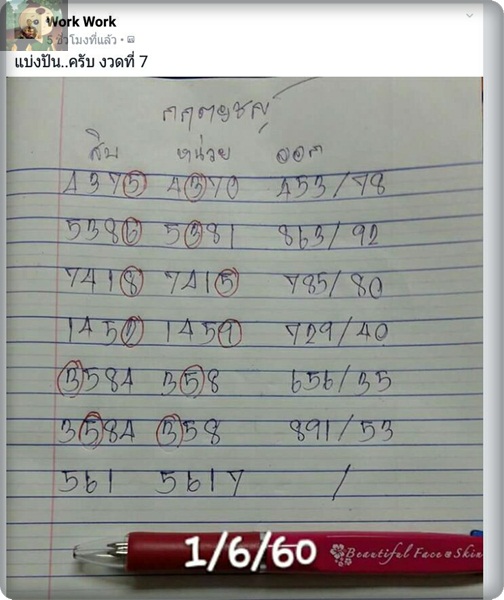 Work Work
5 ชั่วโมงที่แล้ว
แบ่งปัน..ครับ งวดที่ 7
สิบ หน่วย ออก
4375 4370 453/78
5386 5381 863/92
7418 7415 785/80
1452 1459 729/40
3584 358 656/35
3584 358 891/53
561 5617 /
1/6/60
Beautiful Face & Skin